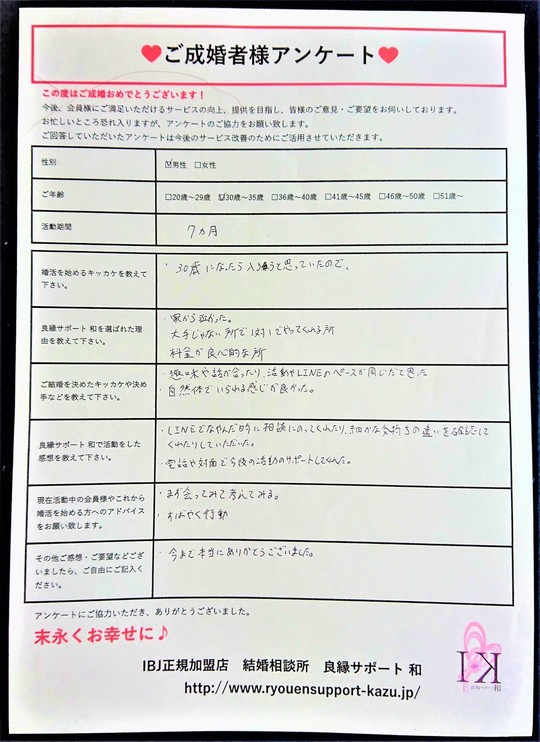 ❤ご成婚者様アンケート❤
この度はご成婚おめでとうございます！
今後、会員様にご満足いただけるサービスの向上、提供を目指し、皆様のご意見・ご要望をお伺いしております。
お忙しいところ恐れ入りますが、アンケートのご協力をお願い致します。
ご回答していただいたアンケートは今後のサービス改善のためにご活用させていただきます。
性別 ☑男性 □女性
ご年齢 □20歳～29歳 ☑30歳～35歳 □36歳～40歳 □41歳～45歳 □46歳～50歳 □51歳～
活動期間 7ヵ月
婚活を始めるキッカケを教えて
下さい。
・30歳になったら入ろうと思っていたので、
良縁サポート 和を選ばれた理
由を教えて下さい。
・家から近かった。
大手じゃない所で1対1でやってくれる所
料金が良心的な所
ご結婚を決めたキッカケや決め
手などを教えて下さい。
・趣味や話が合ったり、活動やLINEのペースが同じだと思った
・自然体でいられる感じが良かった。
良縁サポート 和で活動をした
感想を教えて下さい。
・LINEで 的に相談にのってくれたり、細かな の違いを確認して
くれたりしていただいた。
・電話や対面で今後の活動のサポートしてくれた。
現在活動中の会員様やこれから
婚活を始める方へのアドバイス
をお願い致します。
・まず会ってみて考えてみる。
・すばやく行動
その他ご感想・ご要望などござ
いましたら、ご自由にご記入く
ださい。
・今まで本当にありがとうございました。
アンケートにご協力いただき、ありがとうございました。
末永くお幸せに♪
IBJ正規加盟店 結婚相談所 良縁サポート 和
http://www.ryouensupport-kazu.jp/
良縁サポート和